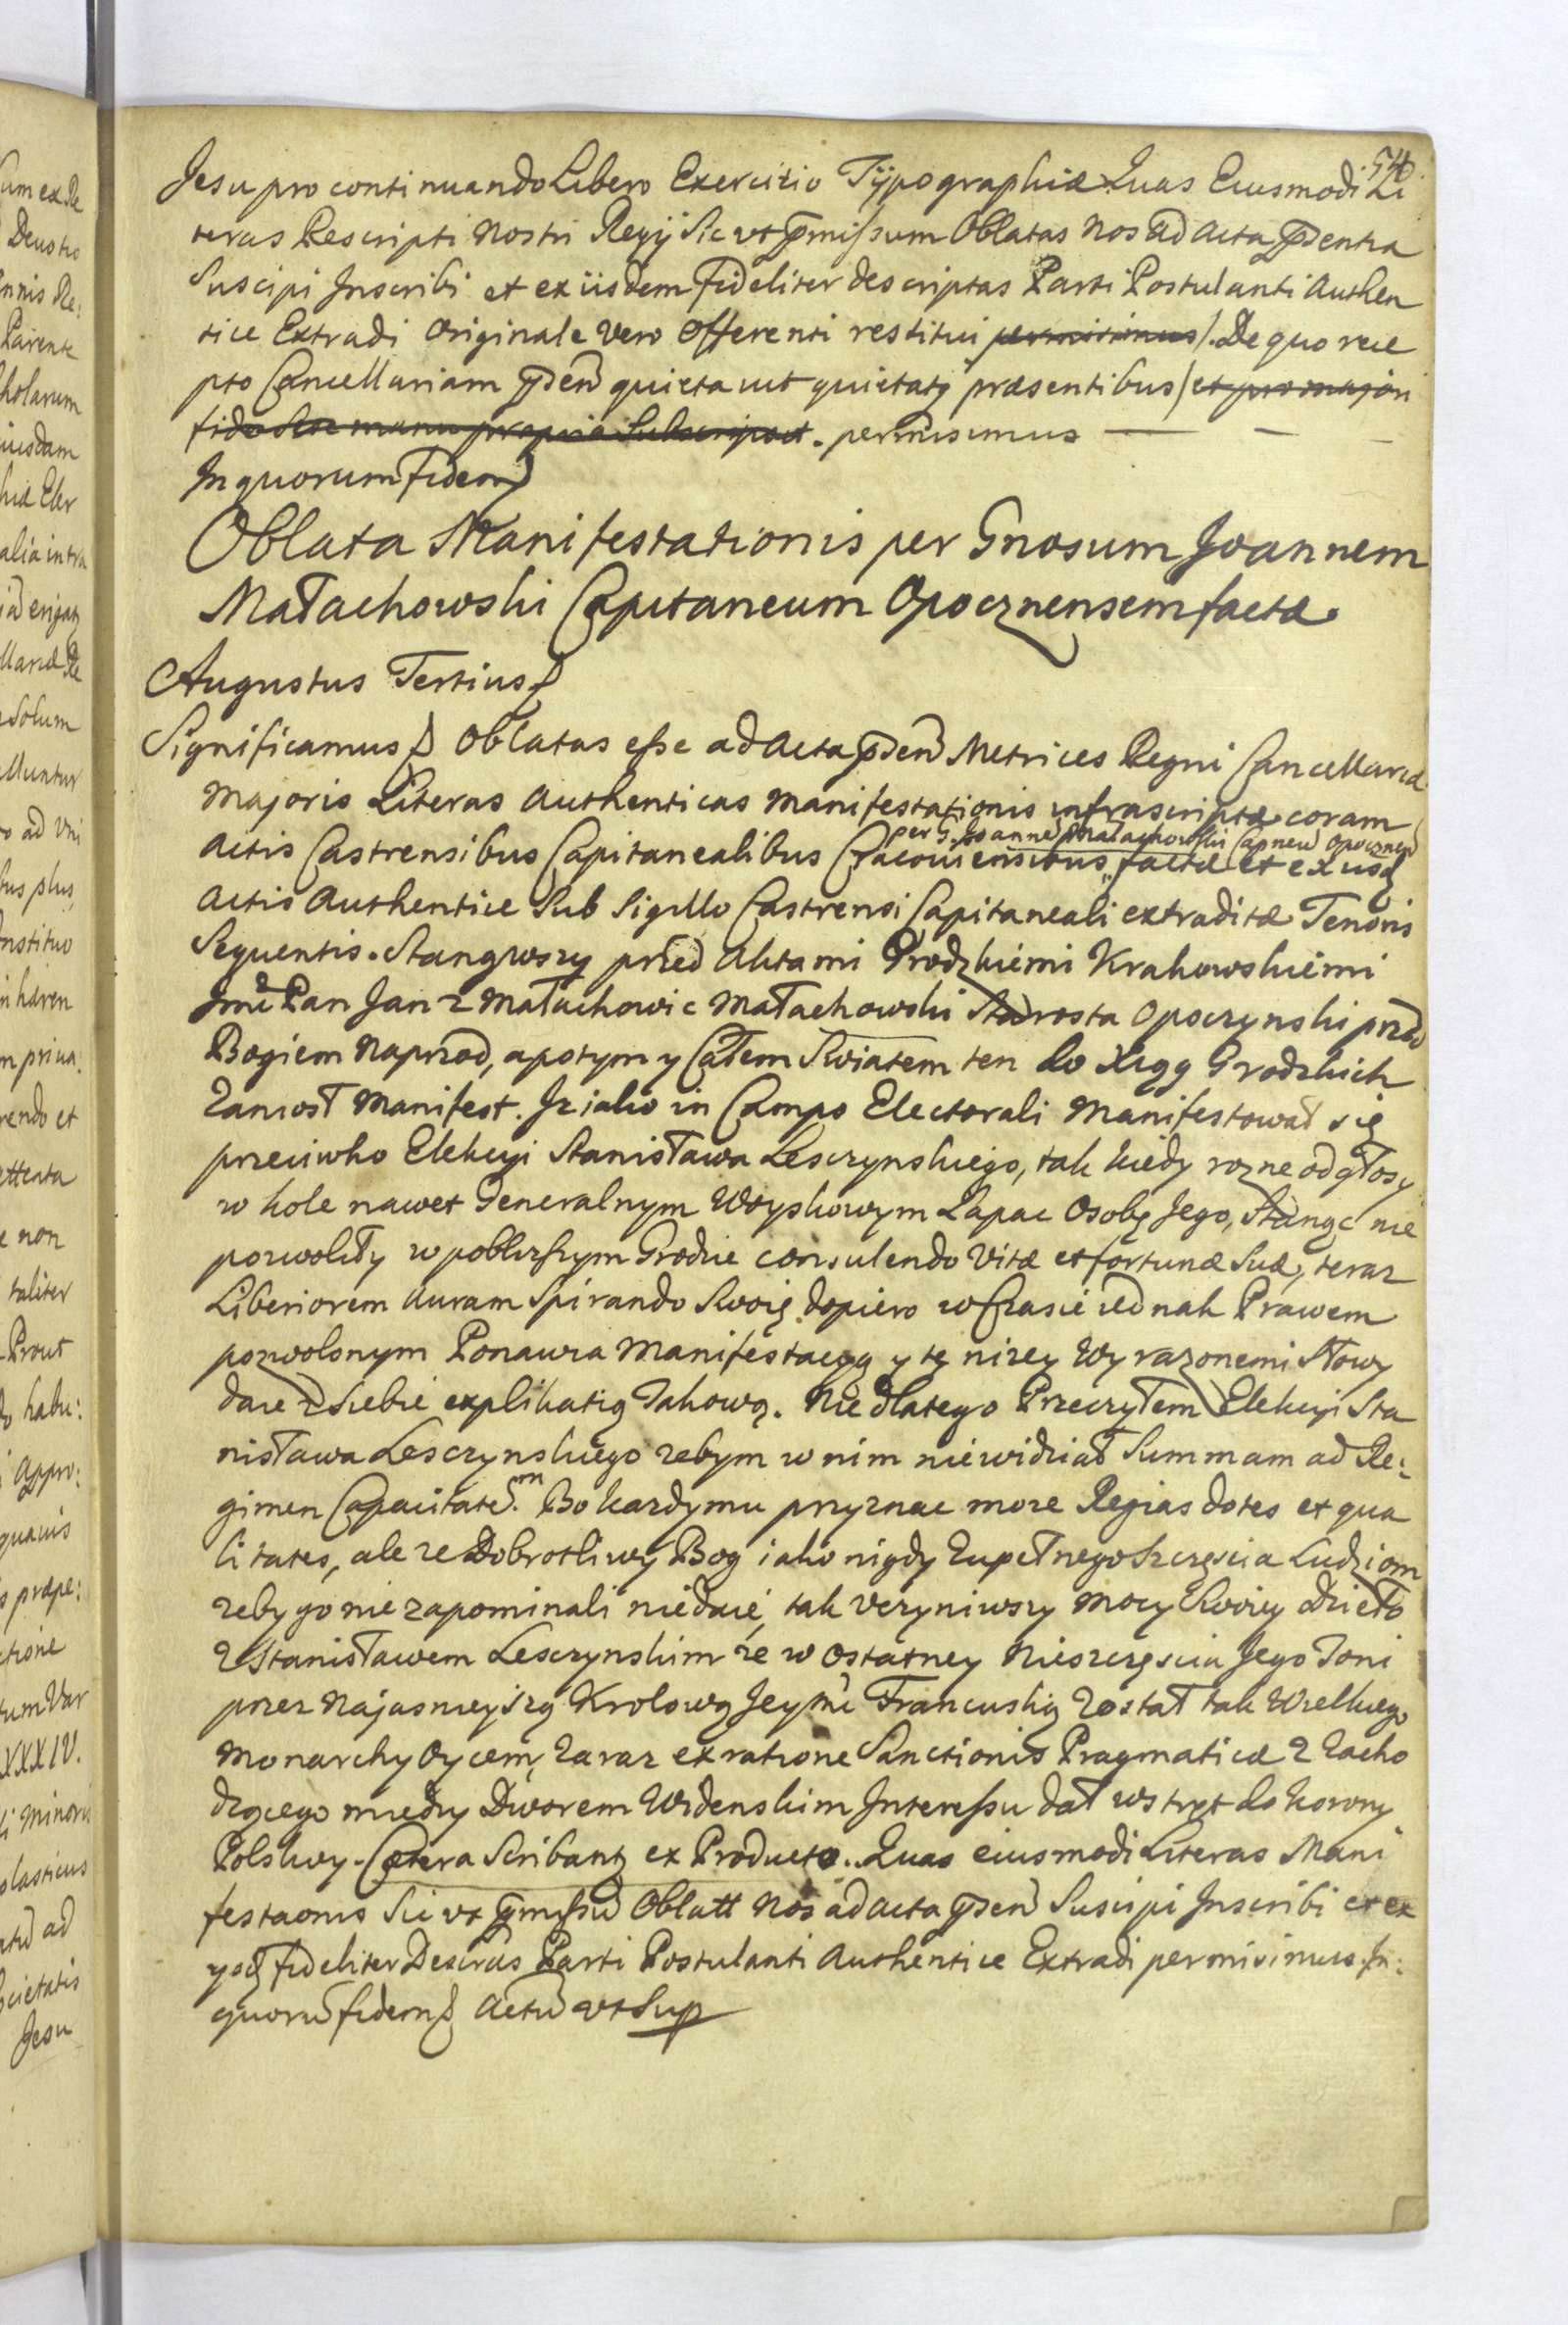 54
Jesu pro continuando Libero Exercitio Typographiæ Quas Eiusmodi Li
teras Rescripti Nostri Regij Sic ut pmissum Oblatas Nos ad Acta psentia
Suscipi Inscribi et ex iisdem fideliter descriptas Parti Postulanti Authen
tice Extradi Originale Vero Offerenti restitui permisimus/. De quo rece
pto Cancellariam psen quieta vit quietatq præsentibus/ et pro majori
fide Se manu propria Subscripsit. permisimus
In quorum Fidem
Oblata Manifestationis per Gnosum Joannem
Małachowski Capitaneum Opocznensem factæ.
Augustus Tertius
Significamus Oblatas esse ad Acta psen Metrices Regni Cancellariæ
Majoris Literas Authenticas Manifestationis infrascriptæ coram
per G. Joanne Małachowski Capneu Opocznen
Actis Castrensibus Capitanealibus Cracoviensibus factæ et ex iisd
Actis Authentice Sub Sigillo Castrensi Capitaneali extraditæ Tenoris
Sequentis. Stanąwszy przed Aktami Grodzkiemi Krakowskiemi
Jmć Pan Jan z Małachowic Małachowski Starosta Opoczynski przed
Bogiem Naprzod, a potym y Całem Swiatem ten do Xiąg Grodzkich
Zaniosł Manifest. Iz iako in Campo Electorali Manifestował się
przeciwko Elekcyi Stanisława Lesczynskiego, tak kiedy rozne odgłosy
w kole nawet Generalnym Woyskowym Łapac Osobę Jego, Stanąc nie
pozwoliły w poblizszym Grodzie consulendo Vitæ et fortunæ Suæ, teraz
Liberiorem Auram Spirando Swoię dopiero w Czasie iednak Prawem
pozwolonym Ponawia Manifestacyą y tę nizey Wyrazonemi Słowy
daie z Siebie explikatią Takową. Nie dlatego Przeczyłem Elekcyi Sta
nisława Lesczynskiego zebym w nim niewidział Summam ad Re:
gimen Capacitatem. Bo kazdymu przyznac moze Regias dotes et qua
litates, ale ze Dobrotliwy Bog iako nigdy Zupełnego Szczęscia Ludziom
zeby go nie zapominali niedaie, tak Uczyniwszy Mocy Swoiey dzieło
z Stanisławem Lesczynskim ze w Ostatney Nieszczęscia Jego Toni
przez Najasnieyszą Krolową Jeymć Francuską Został tak Wielkiego
Monarchy Oycem, Zaraz ex ratione Sanctionis Pragmaticæ z Zacho
dzącego miedzy Dworem Widenskim Interessu dał wstręt do Korony
Polskiey. Cætera Scribantq ex Producto. Quas eiusmodi Literas Mani
festaonis Sic ut pmissu Oblatt Nos ad Acta psen Suscipi Inscribi et ex
ysd fideliter Descrtas Parti Postulanti Authentice Extradi permisimus. In:
quoru fidem Actu ut Sup